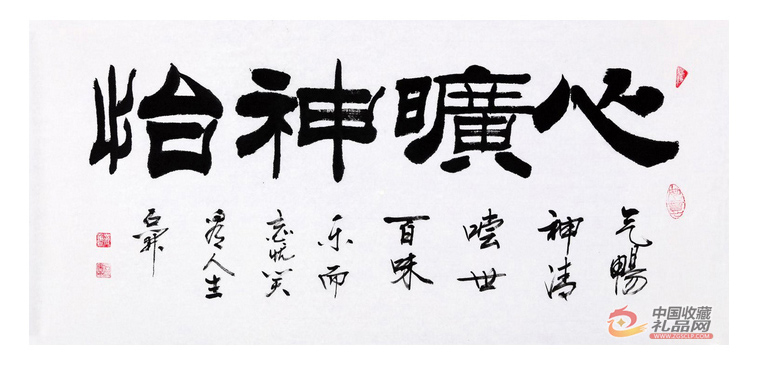 心曠神怡
气暢
神清
世
百味
乐而
忘忧笑
看人生
石
中国收藏
礼品网
WWW.ZGSCLP.COM